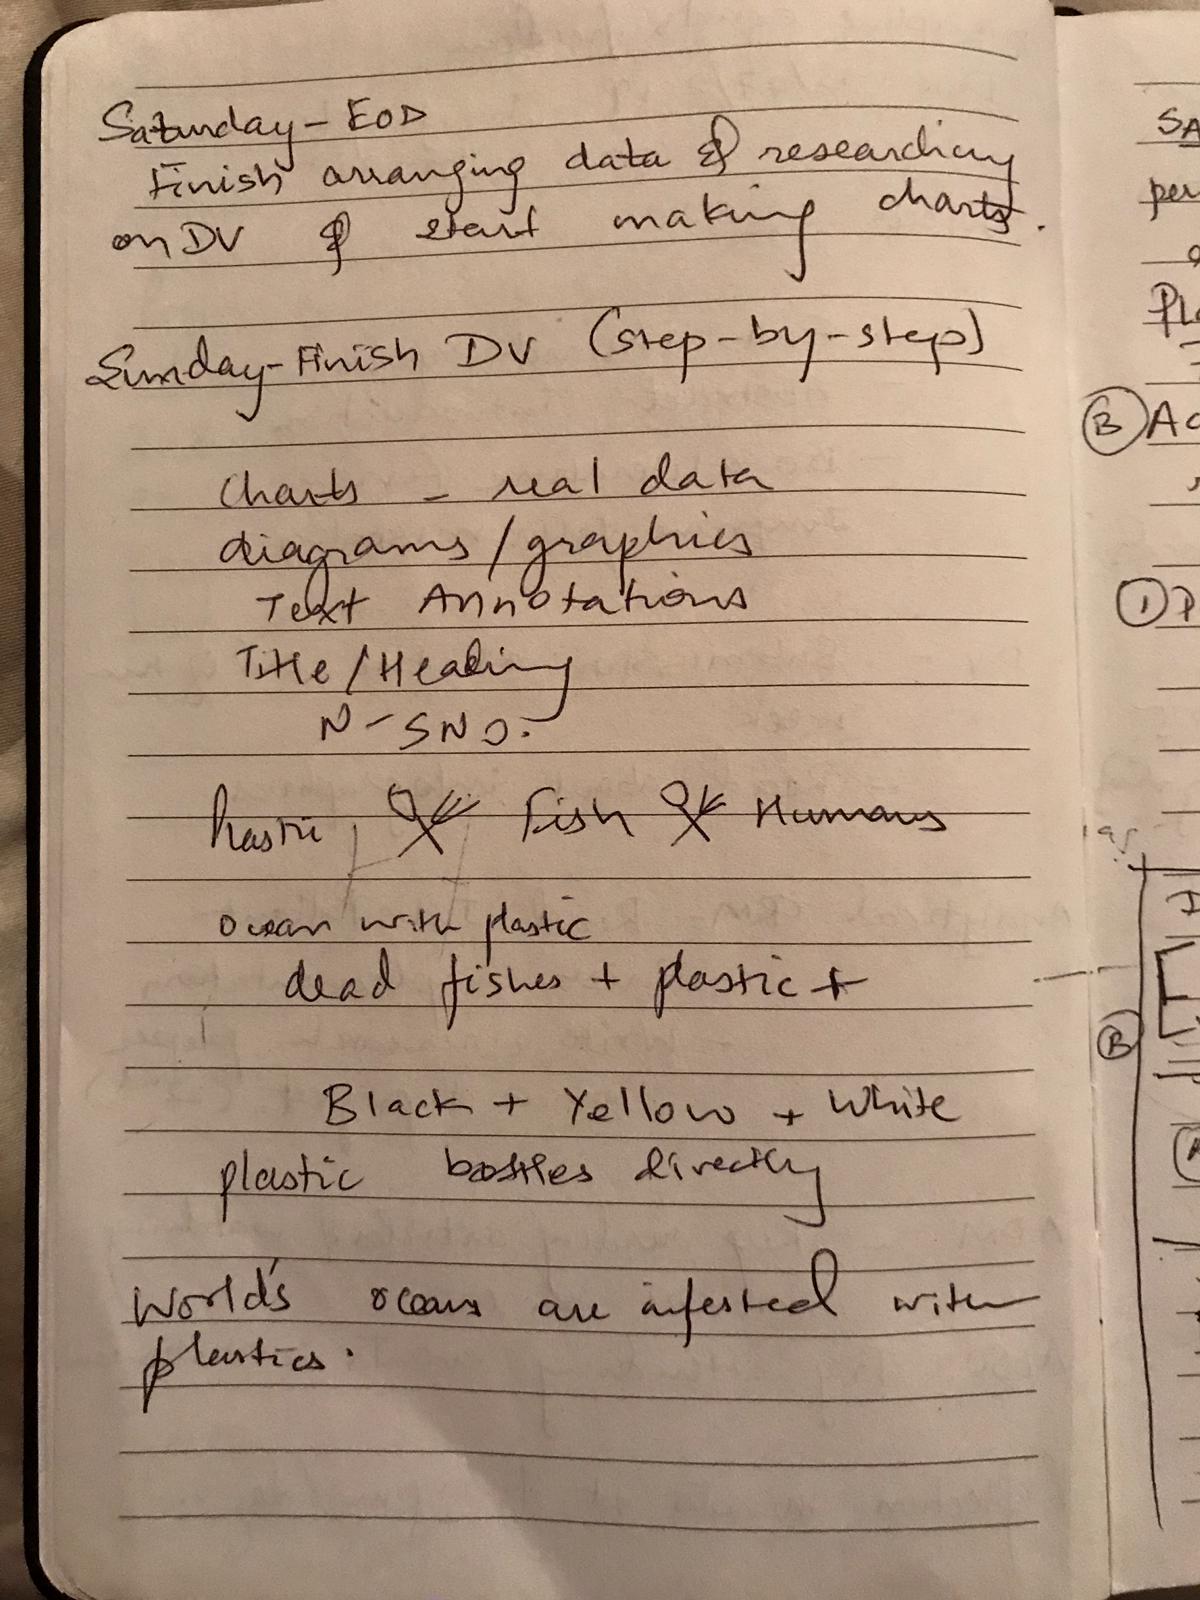 Saturday - EOD
Finish arranging data & researching
on DV & start making charts.
Sunday - Finish DV (step-by-step)
Charts - real data
diagrams / graphics
Text Annotations
Title / Heading
N - SNO.
Plastic Fish Humans
ocean with plastic
dead fishes + plastic +
Black + Yellow + White
plastic bottles directly
World's oceans are infested with
plastics.
SA
per
PLa
B AC
1 P
B